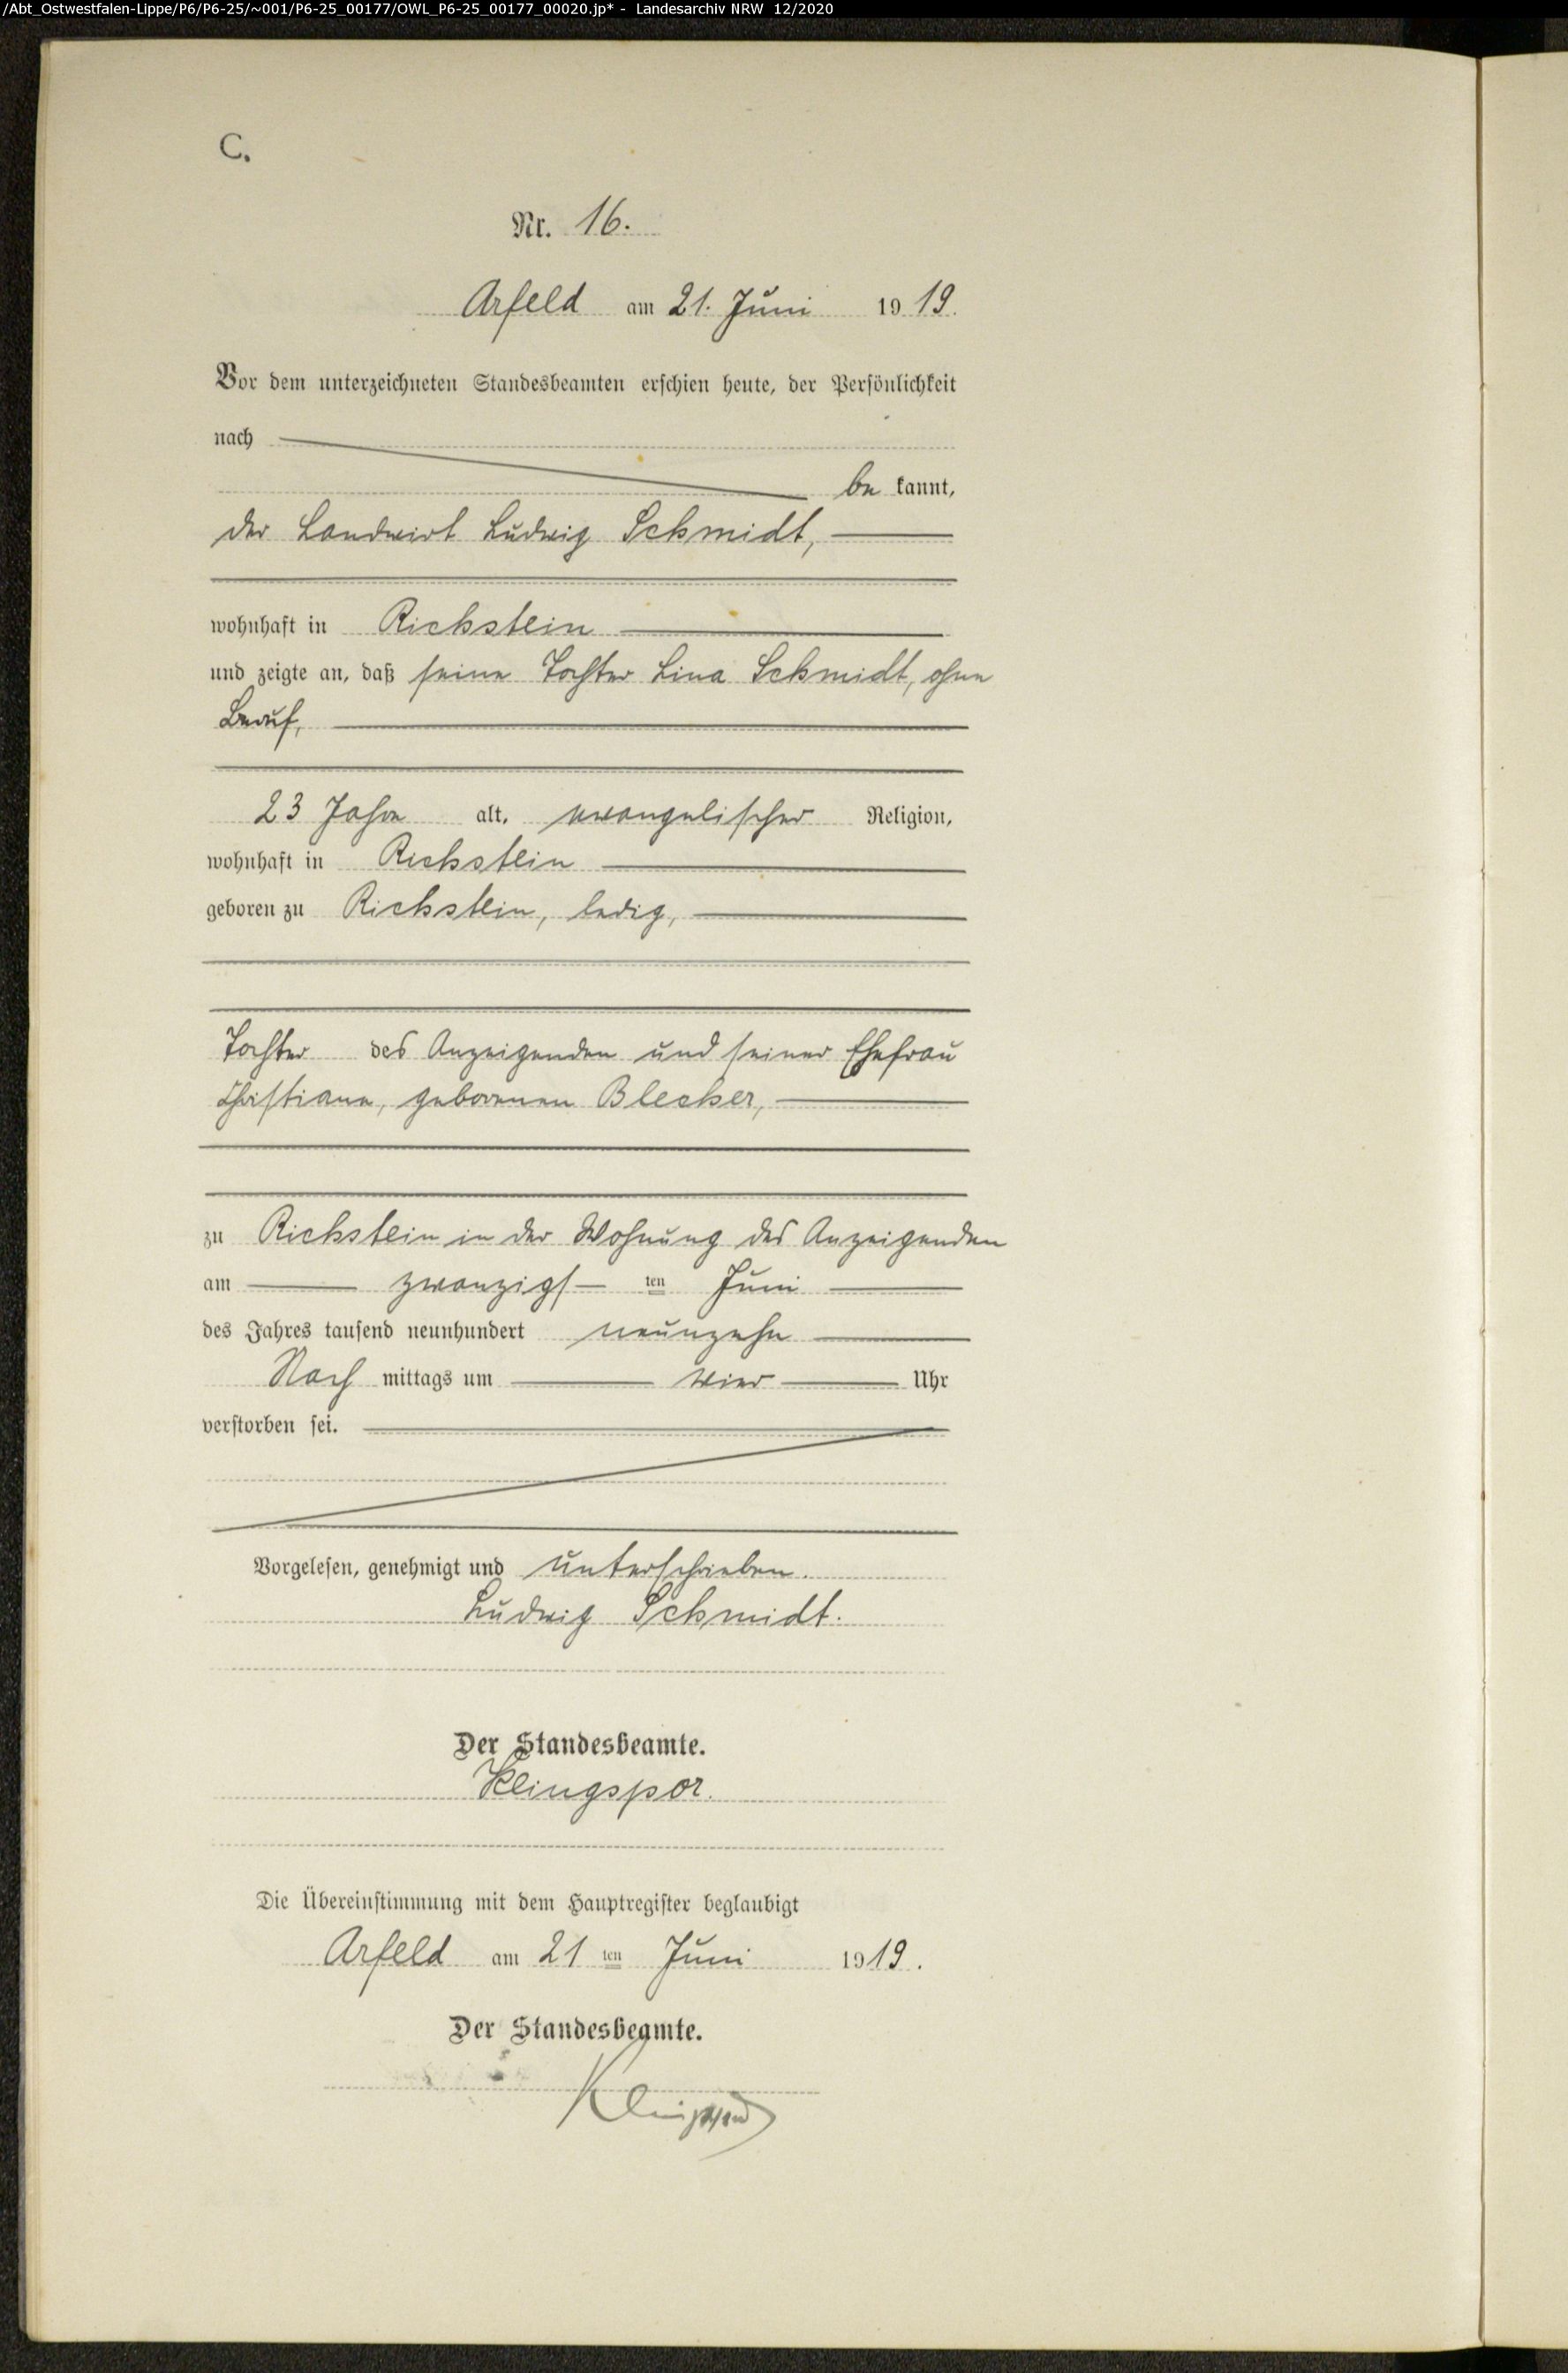 /Abt_Ostwestfalen-Lippe/P6/P6-25/~001/P6-25_00177/OWL_P6-25_00177_00020.jp* - Landesarchiv NRW 12/2020
C.
Nr. 16.
Arfeld am 21. Juni 1919.
Vor dem unterzeichneten Standesbeamten erschien heute, der Persönlichkeit
nach
be kannt,
der Landwirt Ludwig Schmidt,
wohnhaft in Richstein
und zeigte an, daß seine Tochter Lina Schmidt, ohne
Beruf,
23 Jahre alt, evangelischer Religion,
wohnhaft in Richstein
geboren zu Richstein, ledig,
Tochter des Anzeigenden und seiner Ehefrau
Christiane, geborenen Blecher,
zu Richstein in der Wohnung des Anzeigenden
am zwanzigs ten Juni
des Jahres tausend neunhundert neunzehn
Nach mittags um vier Uhr
verstorben sei.
Vorgelesen, genehmigt und unterschrieben.
Ludwig Schmidt.
Der Standesbeamte.
Klingspor.
Die Übereinstimmung mit dem Hauptregister beglaubigt
Arfeld am 21 ten Juni 1919.
Der Standesbeamte.
Klingspor